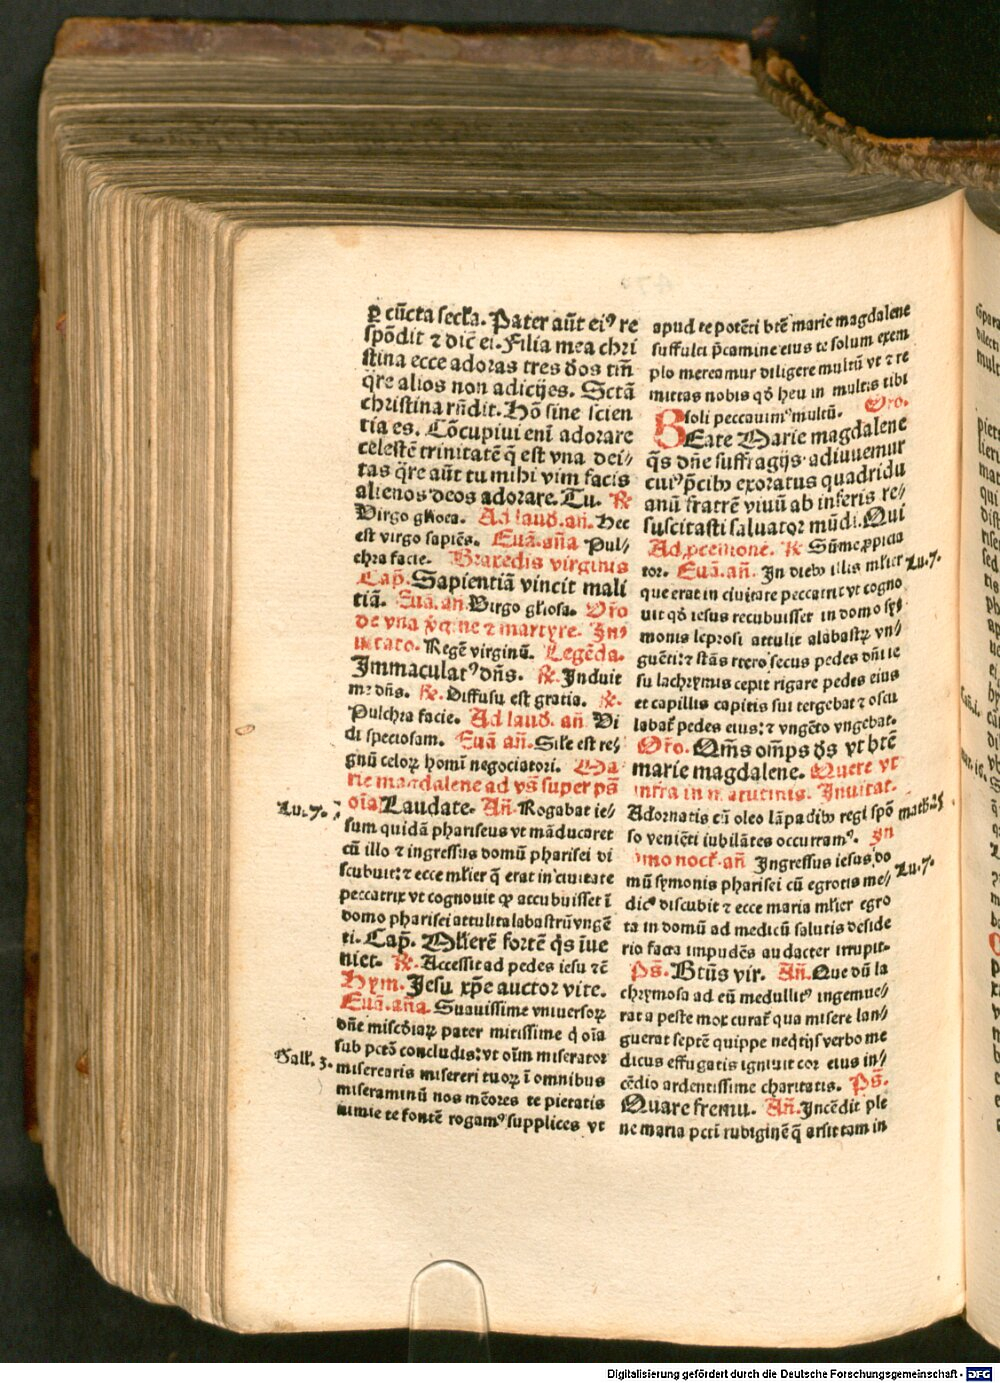 ꝑ cūcta secĺa. Pater aūt ei⁹ re
spōdit ⁊ dic̄ ei. Filia mea chri
stina ecce adoras tres d̄os tm̄
q̄re alios non adicijes. Sctā
christina rn̄dit. Hō sine scien
tia es. Cōcupiui eni adorare
celestē trinitatē q̄ est vna dei⸗
tas q̄re aūt tu mihi vim facis
alienos deos adorare. Tu. ℟
Virgo glīosa. Ad laud. an̄. Hec
est virgo sapiēs. Euā. an̄a Pul⸗
chra facie. Braxedis virginis
Cap̄. Sapientiā vincit mali
tiā. Euā. an̄ Virgo glīosa. Oro
de vna v̄gine ⁊ martyre. In⸗
uitato. Regē virginū. Legēda.
Immaculat⁹ dn̄s. ℟. Induit
me dn̄s. ℟. Diffusa est gratia. ℟.
Pulchra facie. Ad laud. an̄ Vi
di speciosam. Euā an̄. Sil̄e est re⸗
gnū celoꝝ homī negociatori. Ma
rie magdalene ad vs̄ super ps̄
Lu. 7. oīa Laudate. An̄. Rogabat ie⸗
sum quidā phariseus vt māducaret
cū illo ⁊ ingressus domū pharisei di
scubuit: ⁊ ecce ml̄ier q̄ erat in ciuitate
peccatrix vt cognouit ꝙ accubuisset ī
domo pharisei attulit alabastrū vngē
ti. Cap̄. Ml̄ierē fortē q̄s īue
niet. ℟. Accessit ad pedes iesu ⁊ē
Hym. Jesu xp̄e auctor vite.
Euā. an̄a. Suauissime vniuersoꝝ
dn̄e miscōdiaꝝ pater mitissime q̄ oīa
Gall. 3. sub pctō concludis: vt oīm miserator
miserearis misereri tuoꝝ ī omnibus
miseraminū nos mēores te pietatis
nimie te fontē rogam⁹ supplices vt
apud te potēti btē marie magdalene
suffulti p̄camine eius te solum exem
plo mereamur diligere multū vt ⁊ re
mittas nobis qd̄ heu in multis tibi
soli peccauim⁹ multū. Oro.
BEate Marie magdalene
q̄s dn̄e suffragijs adiuuemur
cui⁹ p̄cibꝰ exoratus quadridu
anū fratrē viuū ab inferis re⸗
suscitasti saluator mūdi. Qui
Ad ꝓcessionē. ℟ Sūme ꝓpicia
tor. Euā. an̄. In diebꝰ illis ml̄ier Lu. 7.
que erat in ciuitate peccatrix vt cogno
uit qd̄ iesus recubuisset in domo sy⸗
monis leprosi attulit alabastꝝ vn⸗
guēti: ⁊ stās retro secus pedes dn̄i ie
su lachrymis cepit rigare pedes eius
et capillis capitis sui tergebat ⁊ oscu
labat̄ pedes eius: ⁊ vngēto vngebat.
Oro. Om̄s om̄ps d̄s vt btē
marie magdalene. Quere vt
infra in matutinis. Inuitat.
Adornatis cū oleo lāpadibꝰ regi spō math. 25
so veniēti iubilātes occurram⁹. In
primo noct. an̄ Ingressus iesus do Lu. 7.
mū symonis pharisei cū egrotis me⸗
dic⁹ discubit ⁊ ecce maria ml̄ier egro
ta in domū ad medicū salutis deside
rio facta impudēs audacter irrupit.
Ps̄. Btūs vir. An̄. Que dū la
chrymosa ad eū medullit⁹ ingemue⸗
rat a peste mox curat̄ qua misere lan⸗
guerat septē quippe neqtijs verbo me
dicus effugatis igniuit cor eius in⸗
cēdio ardentissime charitatis. Ps̄.
Quare fremu. An̄. Incēdit ple
ne maria pcti rubiginē q̄ arsit tam in
Digitalisierung gefördert durch die Deutsche Forschungsgemeinschaft - DFG